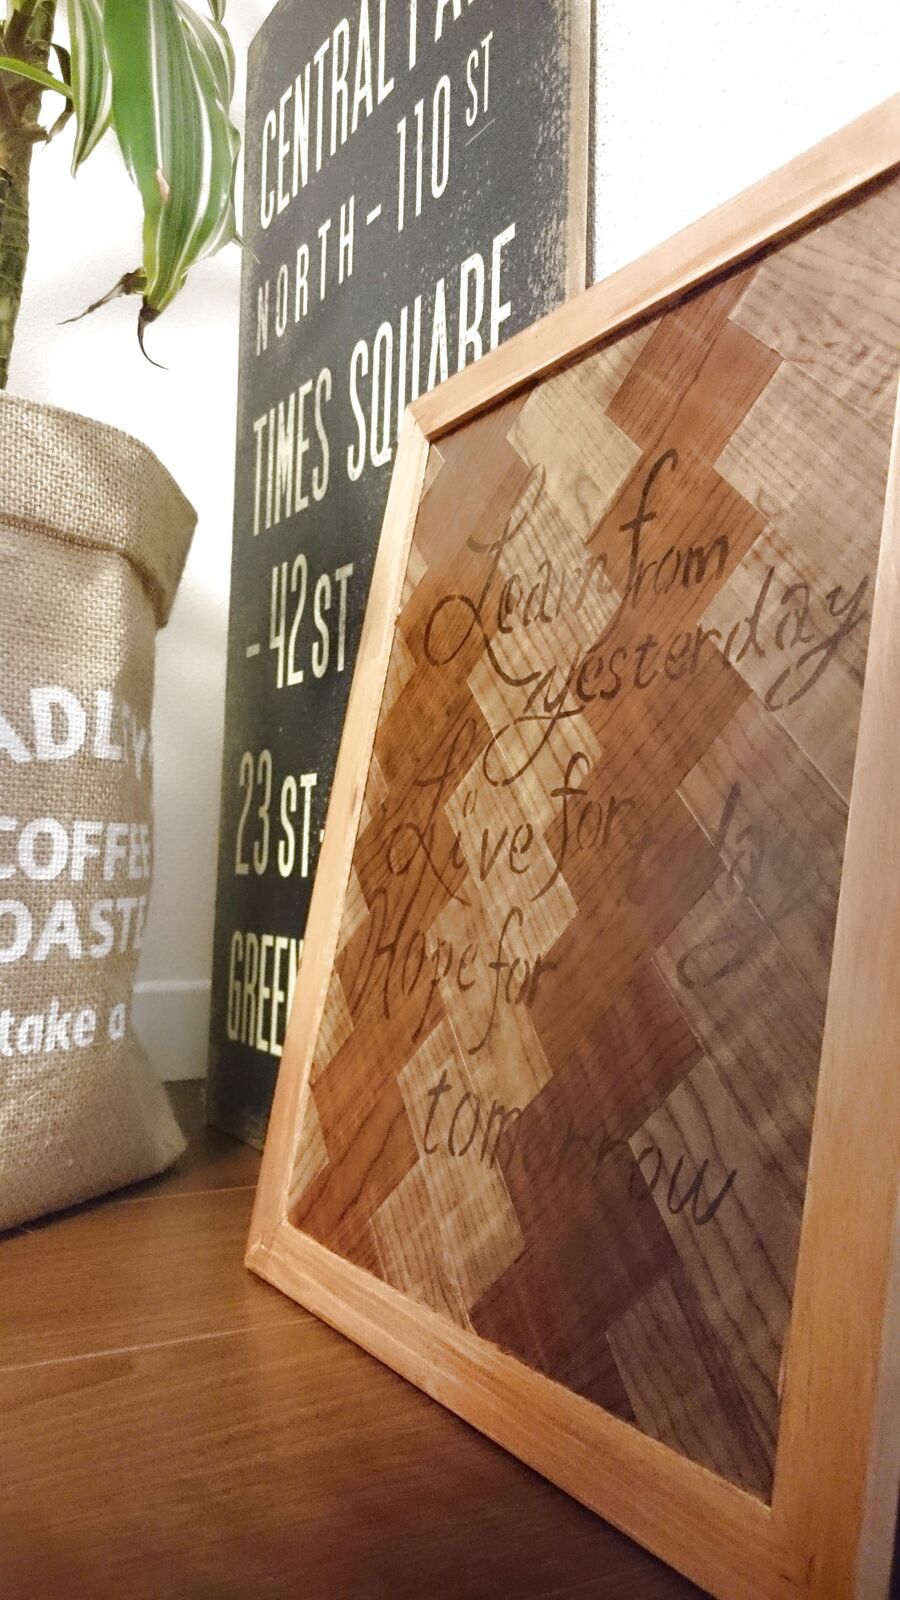 CENTRAL PA
NORTH-110 ST
TIMES SQUARE
-42 ST
23 ST-
GREEN
COFFEE
OASTE
take a
Learn from
yesterday
Live for today
Hope for
tomorrow